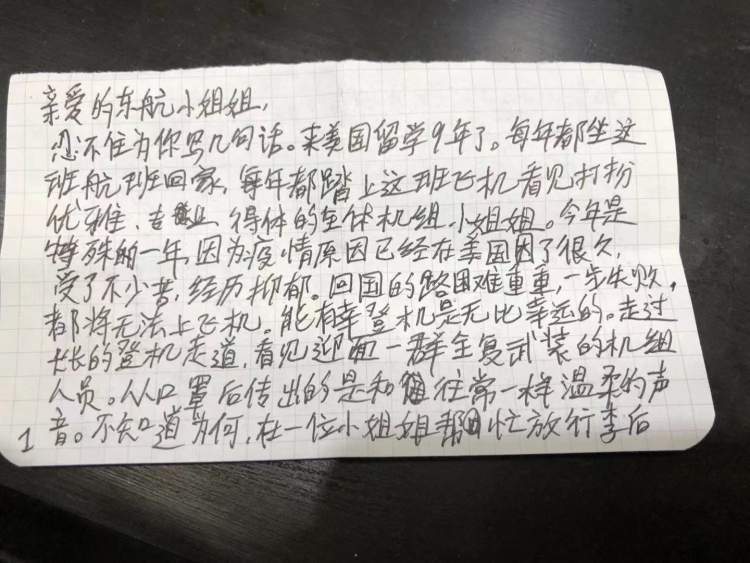 亲爱的东航小姐姐，
忍不住为你写几句话。来美国留学9年了。每年都坐这
班航班回家，每年都踏上这班飞机看见打扮
优雅、专业、得体的全体机组小姐姐。今年是
特殊的一年，因为疫情原因已经在美国困了很久，
受了不少苦，经历抑郁。回国的路困难重重，一步失败，
都将无法上飞机。能有幸登机是无比幸运的。走过
长长的登机走道，看见迎面一群全复武装的机组
人员。从口罩后传出的是和往常一样温柔的声
音。不知道为何，在一位小姐姐帮忙放行李后
1